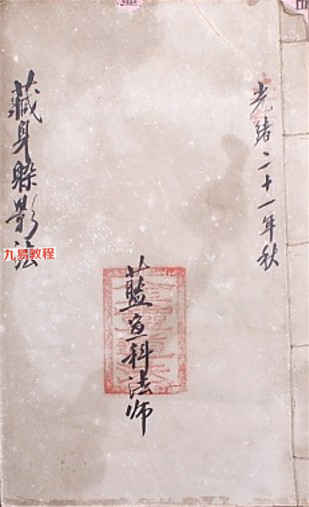 光绪二十一年秋
藍宣科法师
藏身躲影法
九易教程